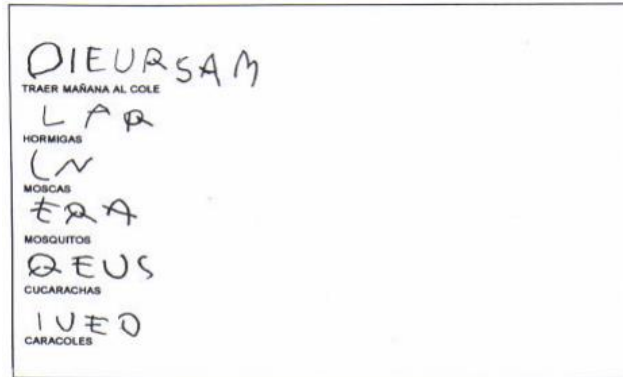 DIEURSAM
TRAER MAÑANA AL COLE
LAR
HORMIGAS
LN
MOSCAS
ERA
MOSQUITOS
REUS
CUCARACHAS
IUEO
CARACOLES